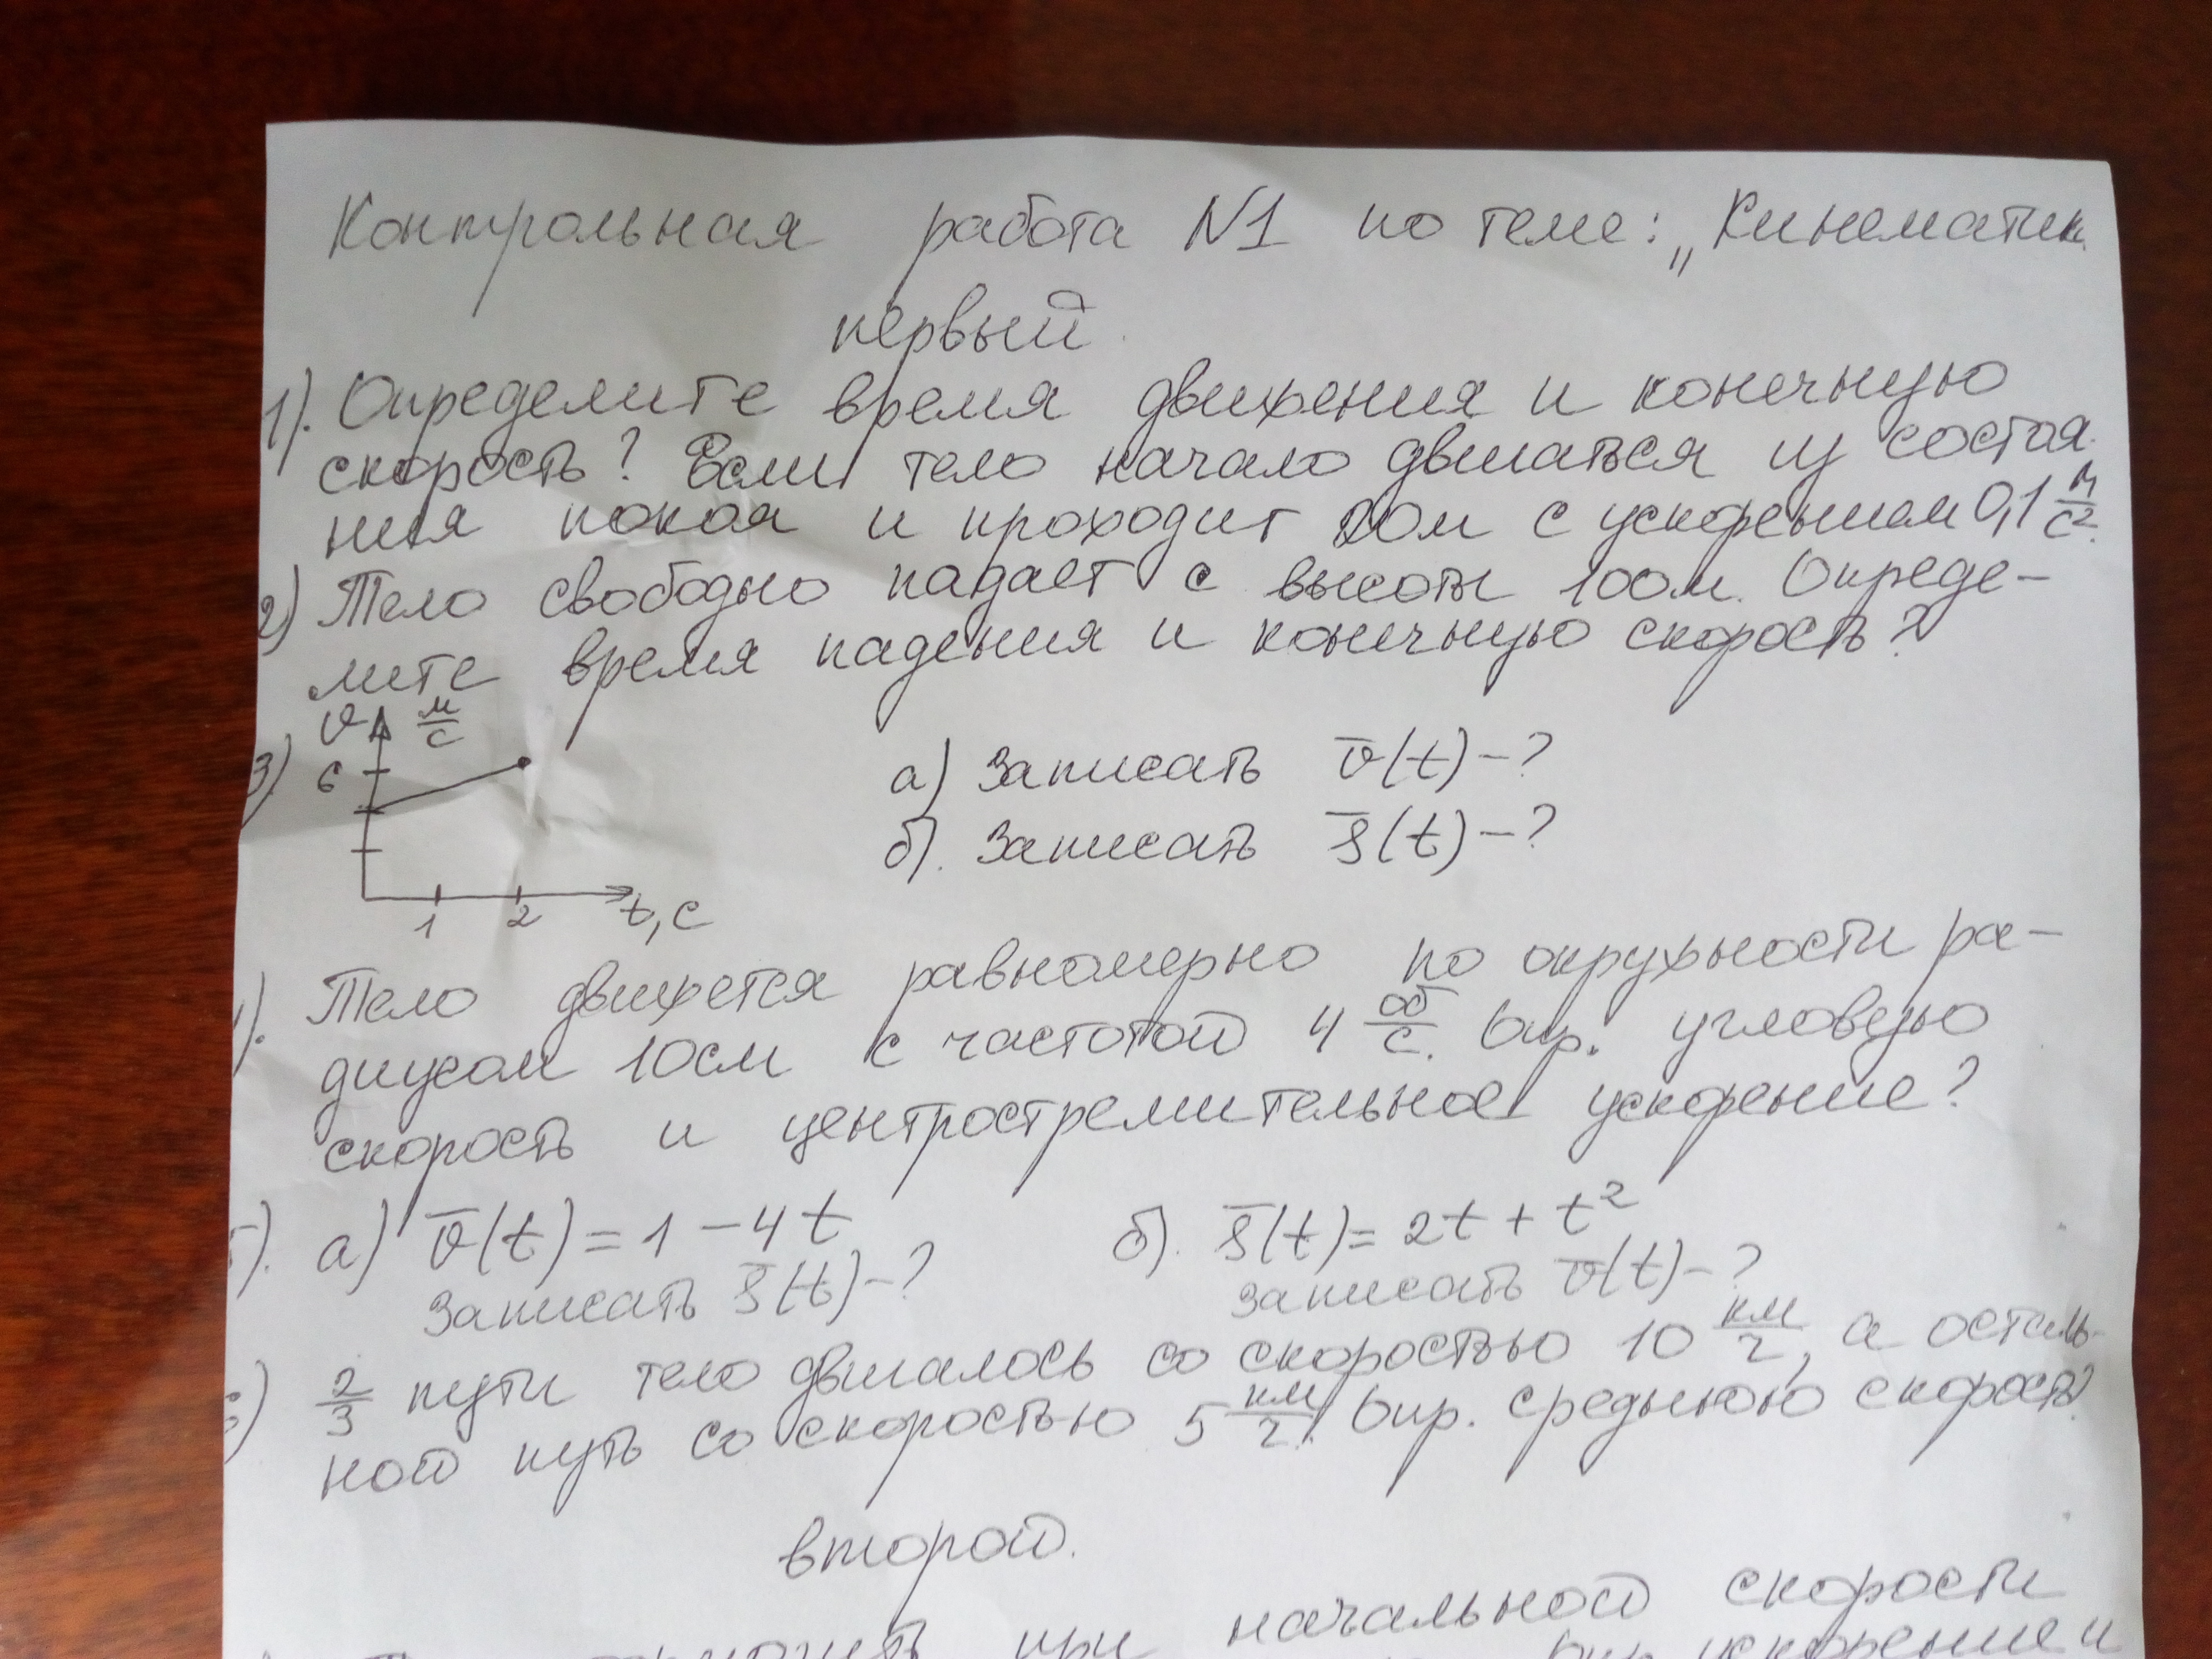 Контрольная работа N1 по теме: „Кинематик
первый.
1). Определите время движения и конечную
скорость? Если тело начало двигаться из состоя-
ния покоя и проходит 20м с ускорением 0,1 м/с².
2) Тело свободно падает с высоты 100м. Опреде-
лите время падения и конечную скорость?
3) υ м/с
6
1 2 t, с
а) Записать υ̅(t) – ?
б). Записать s̅(t) – ?
). Тело движется равномерно по окружности ра-
диусом 10см с частотой 4 об/с. Опр. угловую
скорость и центростремительное ускорение?
). а) υ̅(t) = 1 – 4t
Записать s̅(t) – ?
б). s̅(t) = 2t + t²
записать υ̅(t) – ?
) 2/3 пути тело двигалось со скоростью 10 км/г, а осталь-
ной путь со скоростью 5 км/г. Опр. среднюю скорость?
второй.
при начальной скорости
ускорение и